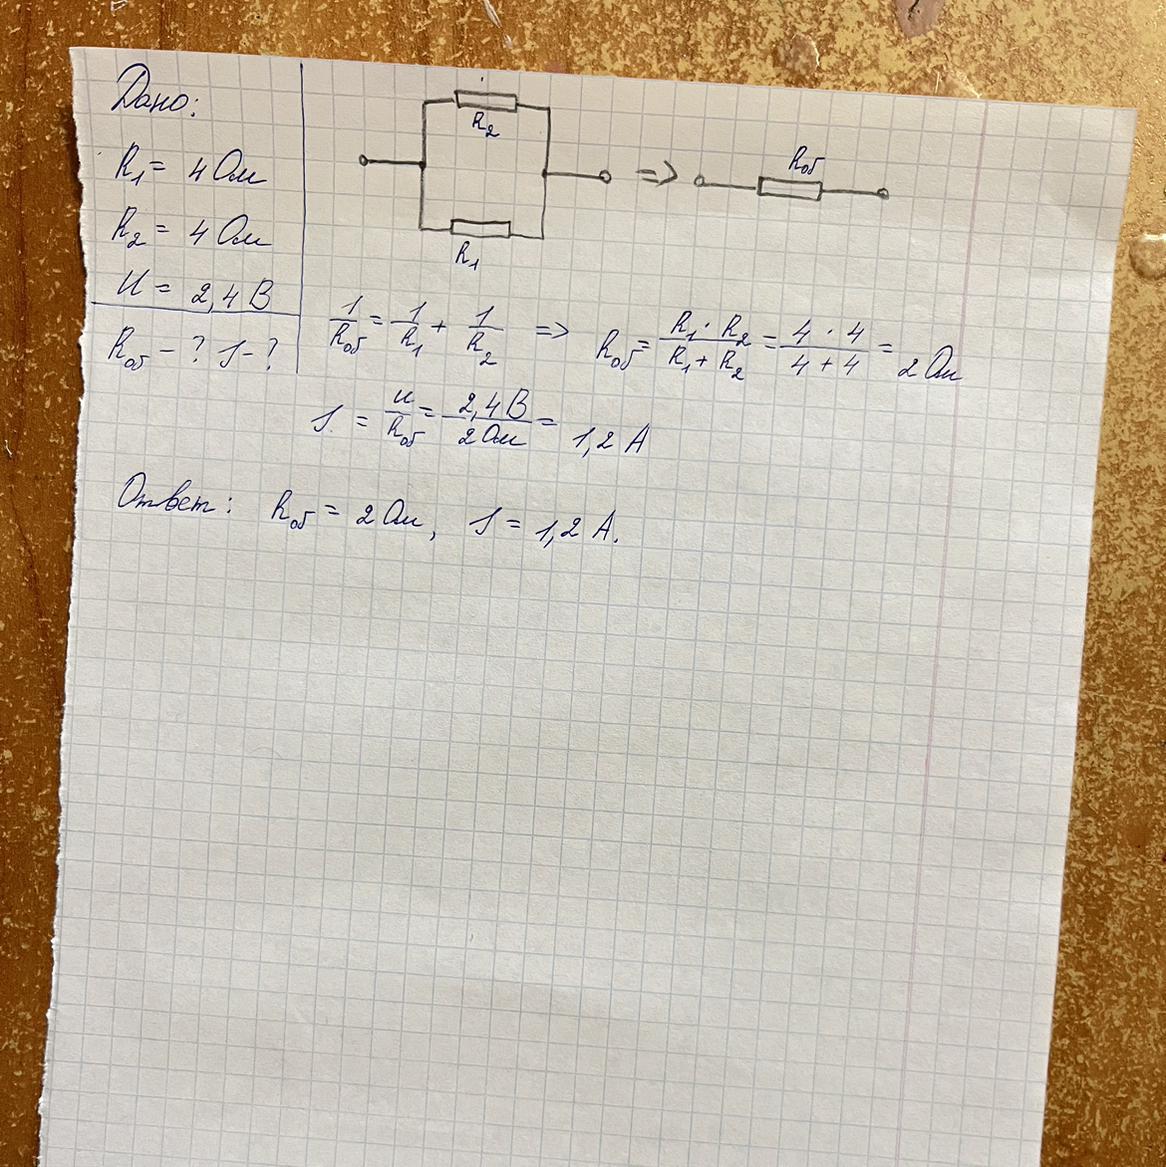 Дано:
R₁ = 4 Ом
R₂ = 4 Ом
U = 2,4 В
Rоб - ? I - ?
R₂
R₁
=> Rоб
1/Rоб = 1/R₁ + 1/R₂ => Rоб = R₁ · R₂ / R₁ + R₂ = 4 · 4 / 4 + 4 = 2 Ом
I = U/Rоб = 2,4 В / 2 Ом = 1,2 А
Ответ: Rоб = 2 Ом, I = 1,2 А.